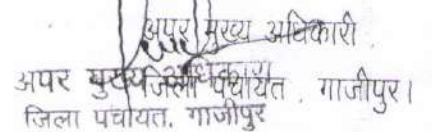 अपर मुख्य अधिकारी
अपर मुख्य जिला पंचायत, गाजीपुर।
जिला पंचायत, गाजीपुर